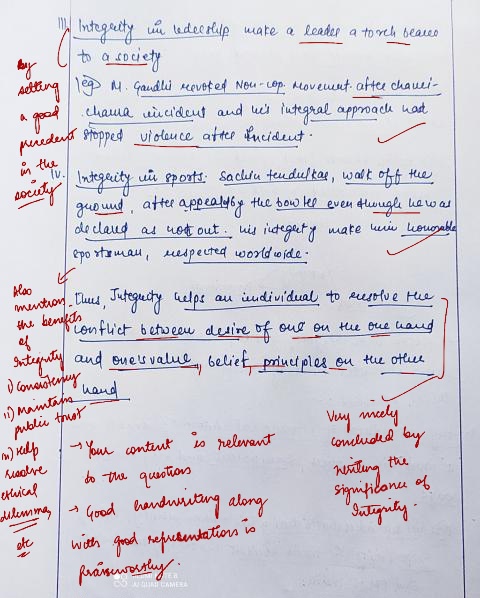 III. Integrity in ledeeship make a leader a torch bearer
to a society
(eg) M. Gandhi revoted Non-cop. Movement. after chauri-
chama incident and his integral approach had
stopped violence after Incident.
By
setting
a good
precedent
in the
society
IV. Integrity in sports: Sachin tendulkar, walk off the
ground, after appealed by the bowler even though he was
declared as not out. his integrity make him honorable
sportsman, respected worldwide.
Thus, Integrity helps an individual to resolve the
conflict between desire of one on the one hand
and one's value, belief, principles on the other
hand
Also
mention
the benefits
of
Integrity
i) Consistency
ii) Maintain
public trust
iii) Help
resolve
ethical
dilemmas
etc
Very nicely
concluded by
writing the
significance of
Integrity.
→ Your content is relevant
to the question
→ Good handwriting along
with good representations is
Praiseworthy.
AI QUAD CAMERA